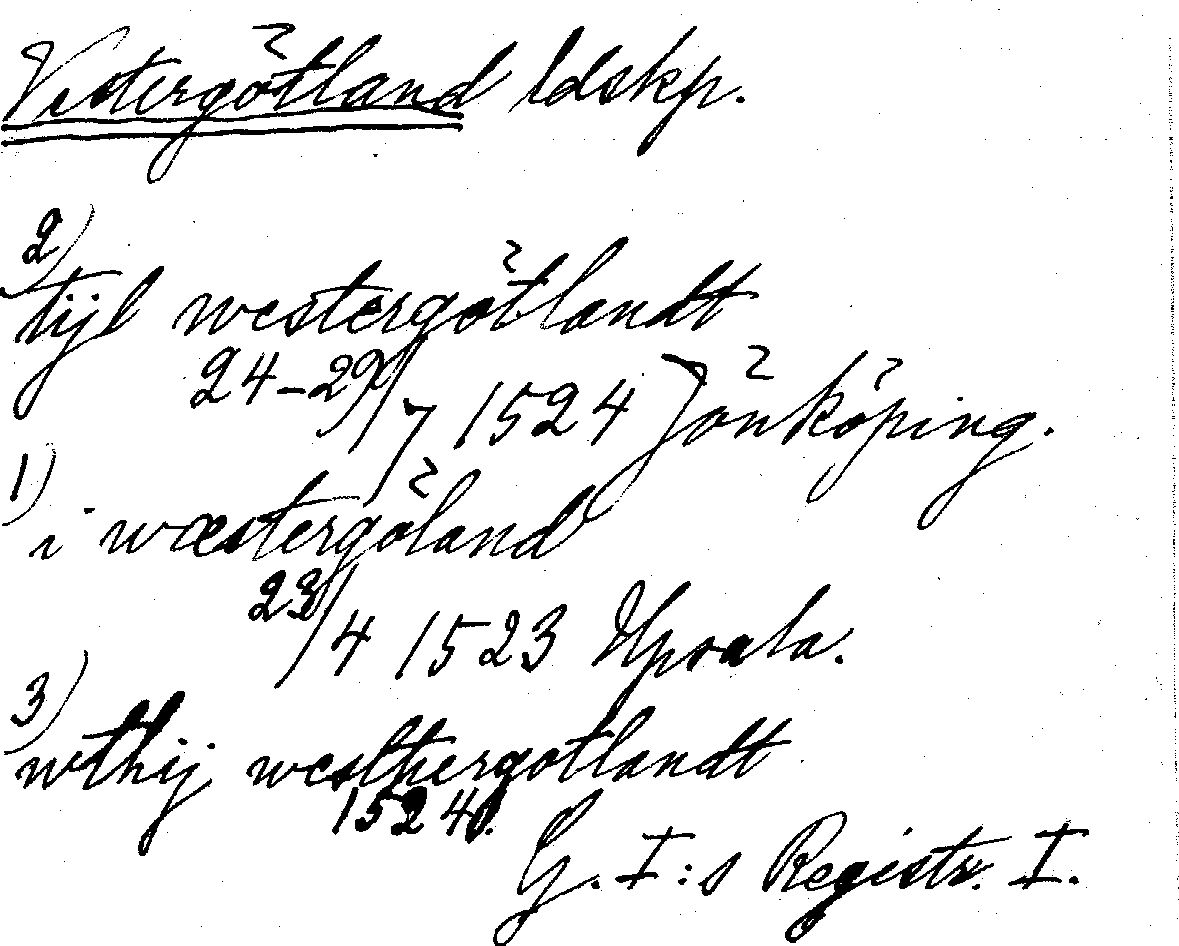 Vestergötland ldskp.
2)
tijl westergötlandt
24-29/7 1524 Jönköping.
1)
i wæstergöland
23/4 1523 Upsala.
3)
wthij westhergotlandt
1524.
G. I:s Registr. I.